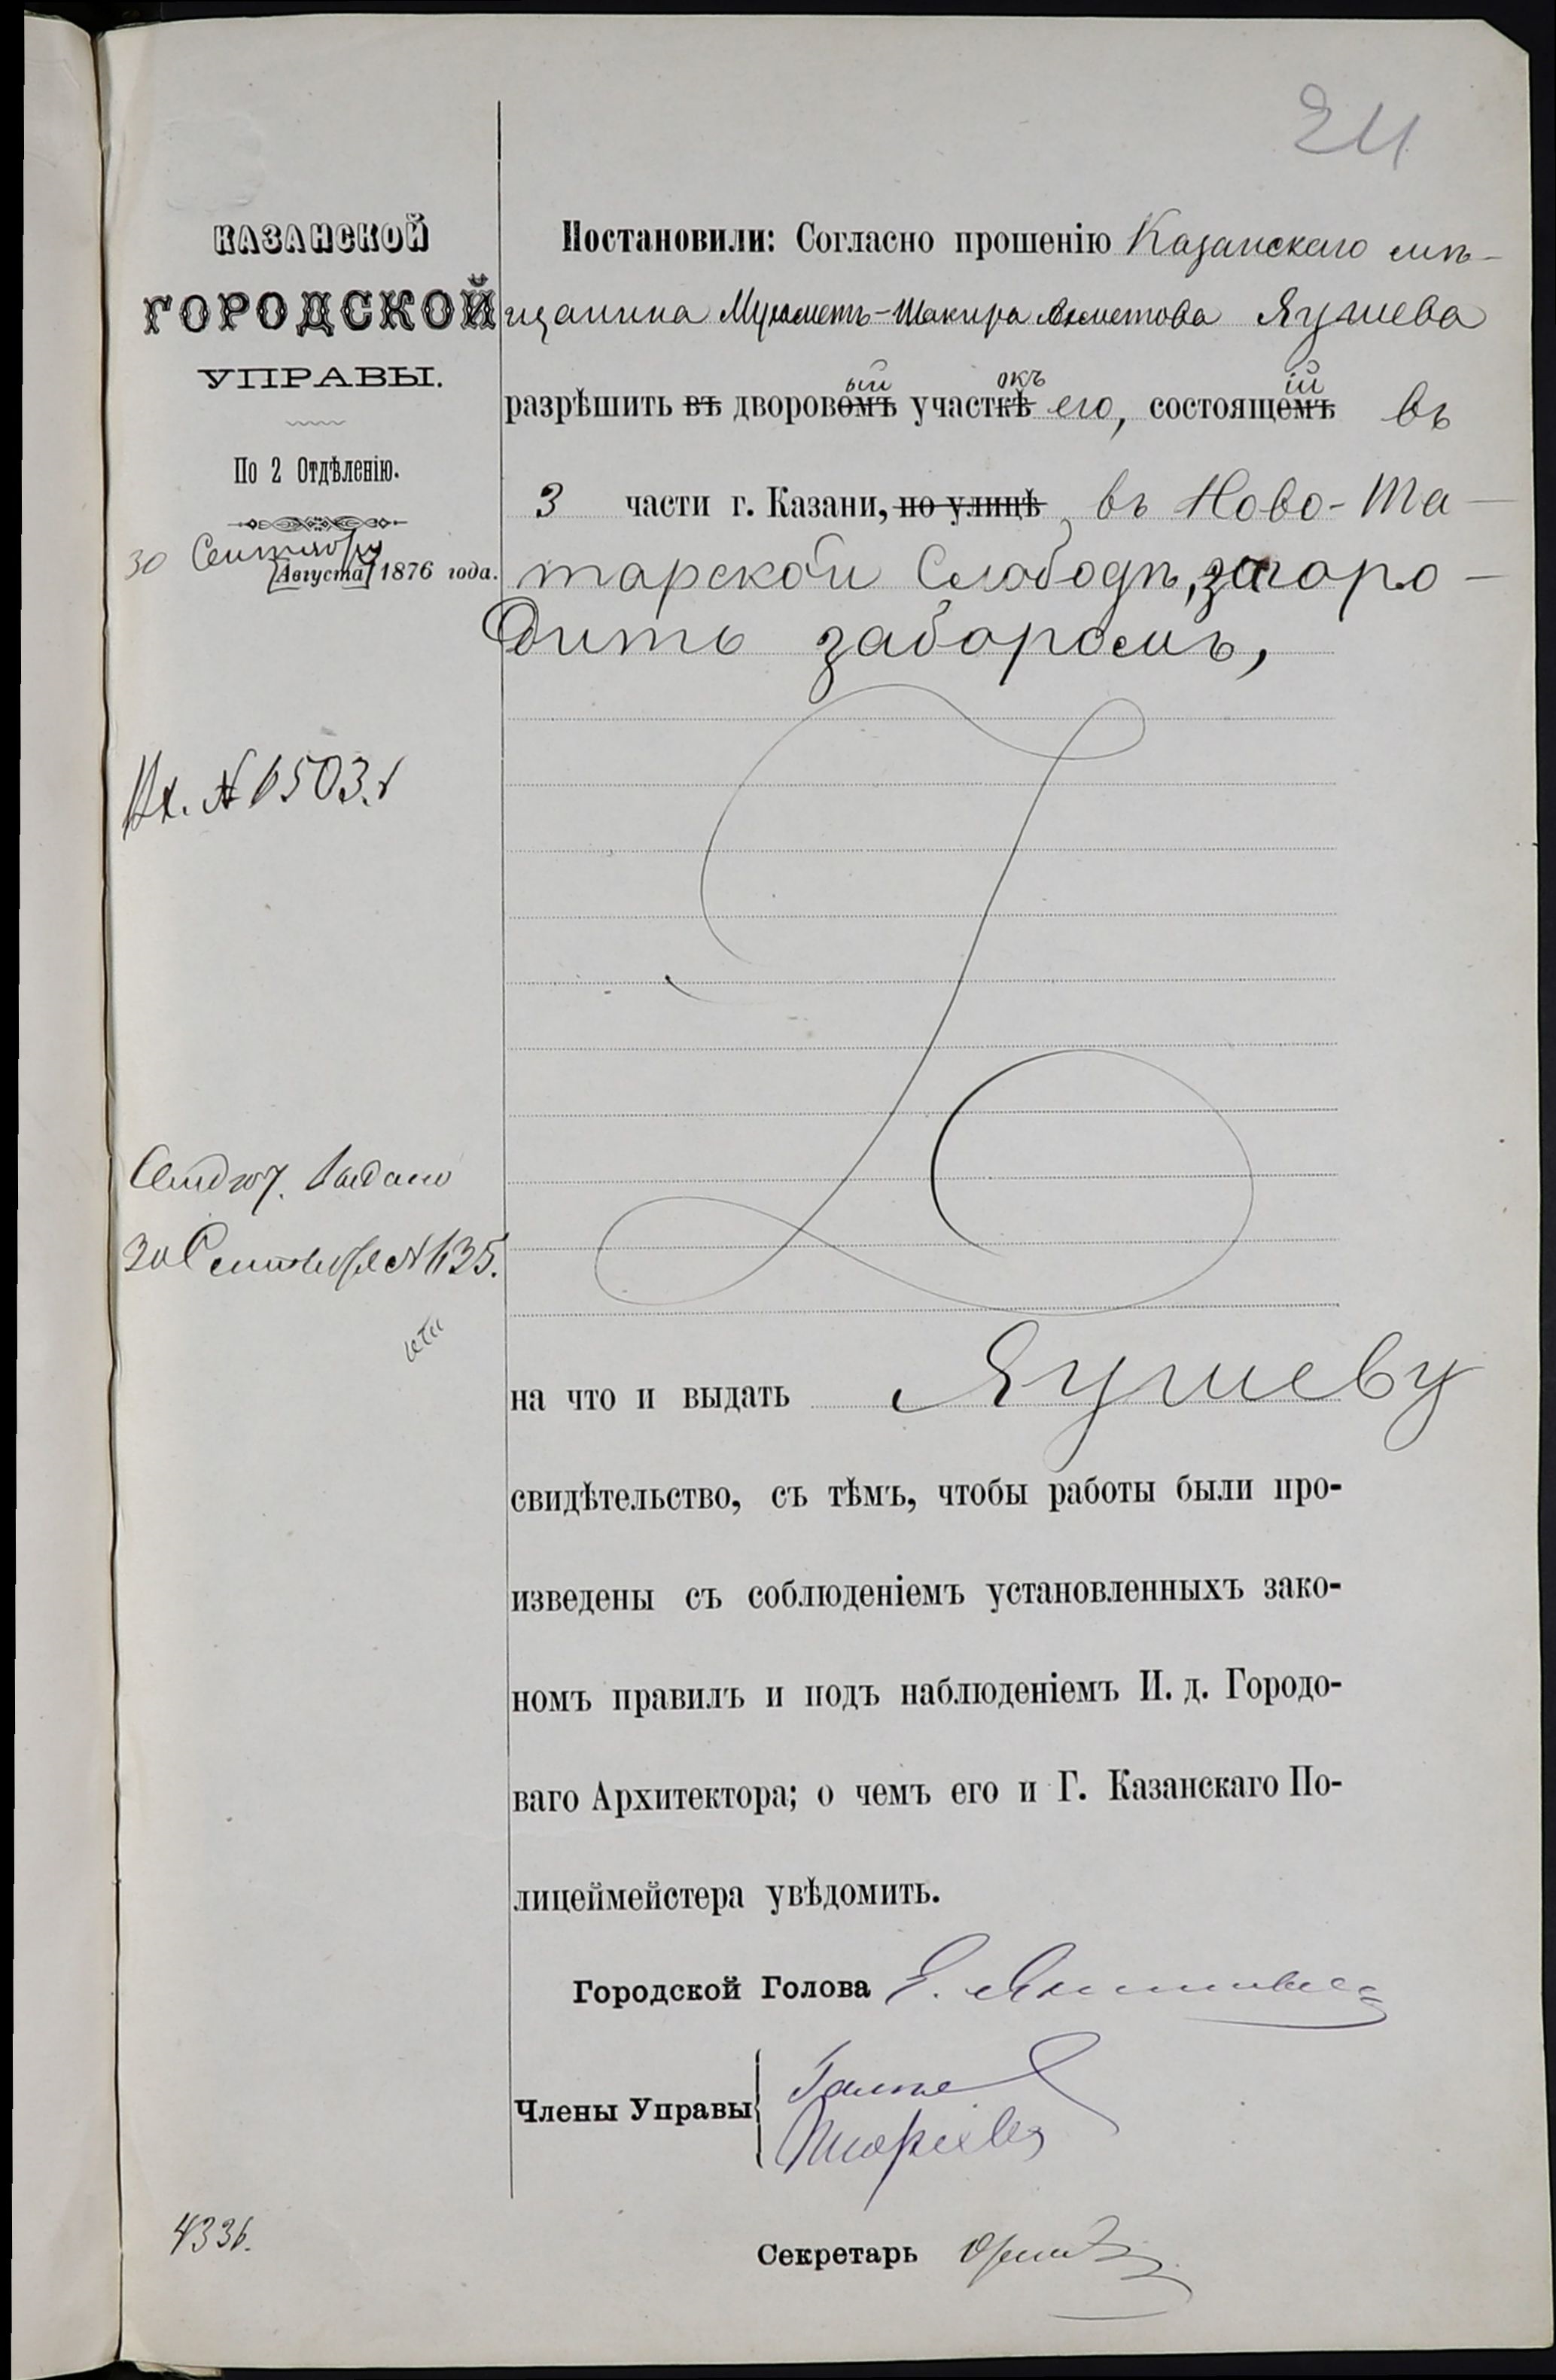 24
КАЗАНСКОЙ
ГОРОДСКОЙ
УПРАВЫ.
По 2 Отдѣленію.
30 Сентября
[Августа] 1876 года.
Вх. № 6503.
Свидѣт. Выдано
30 Сентября № 635.
4336.
Постановили: Согласно прошенію Казанскаго мѣ-
щанина Мухаметъ-Шакира Ахметова Яушева
разрѣшить въ дворовомъ ый участкѣ окъ его, состоящемъ ій въ
3 части г. Казани, по улицѣ въ Ново-Та-
тарской Слободѣ, загоро-
дить заборомъ,
на что и выдать Яушеву
свидѣтельство, съ тѣмъ, чтобы работы были про-
изведены съ соблюденіемъ установленныхъ зако-
номъ правилъ и подъ наблюденіемъ И. д. Городо-
ваго Архитектора; о чемъ его и Г. Казанскаго По-
лицеймейстера увѣдомить.
Городской Голова
Члены Управы
Секретарь